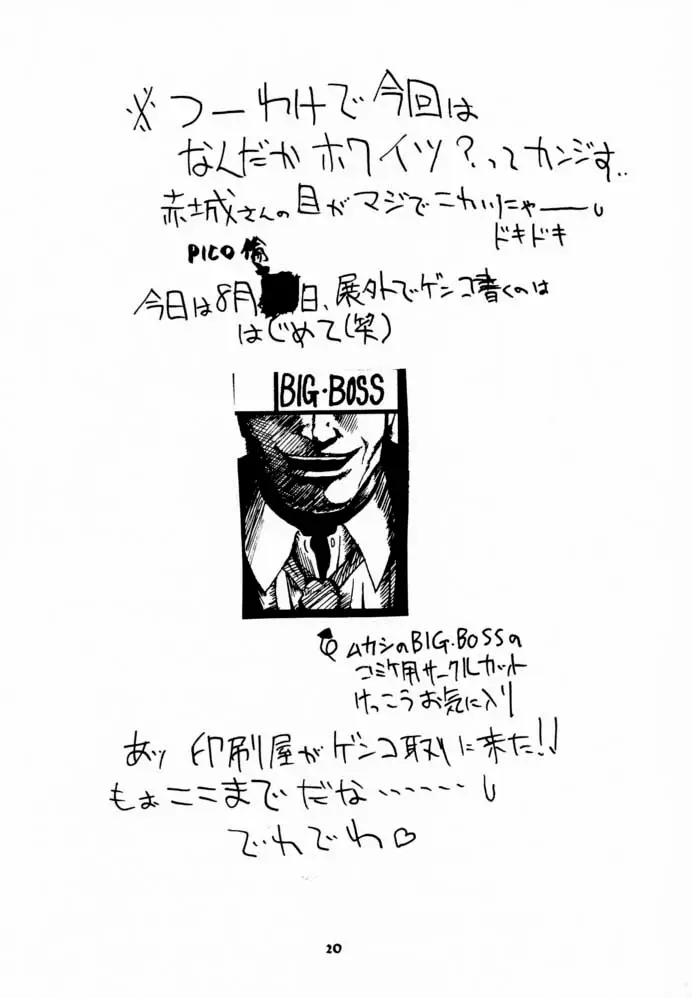 ※つーわけで今回は
なんだかホワイツ?ってカンジす..
赤城さんの目がマジでこわいにゃー
ドキドキ
PICO
今日は8月 日、屋外でゲンコ書くのは
はじめて(笑)
BIG・BOSS
ムカシのBIG・BOSSの
コミケ用サークルカット
けっこうお気に入り
あッ 印刷屋がゲンコ取りに来た!!
もぉここまでだな……
でわでわ♡
20